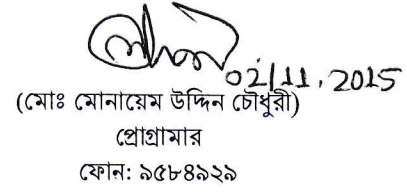 02/11.2015
(মোঃ মোনায়েম উদ্দিন চৌধুরী)
প্রোগ্রামার
ফোন: ৯৫৮৪৯২৯